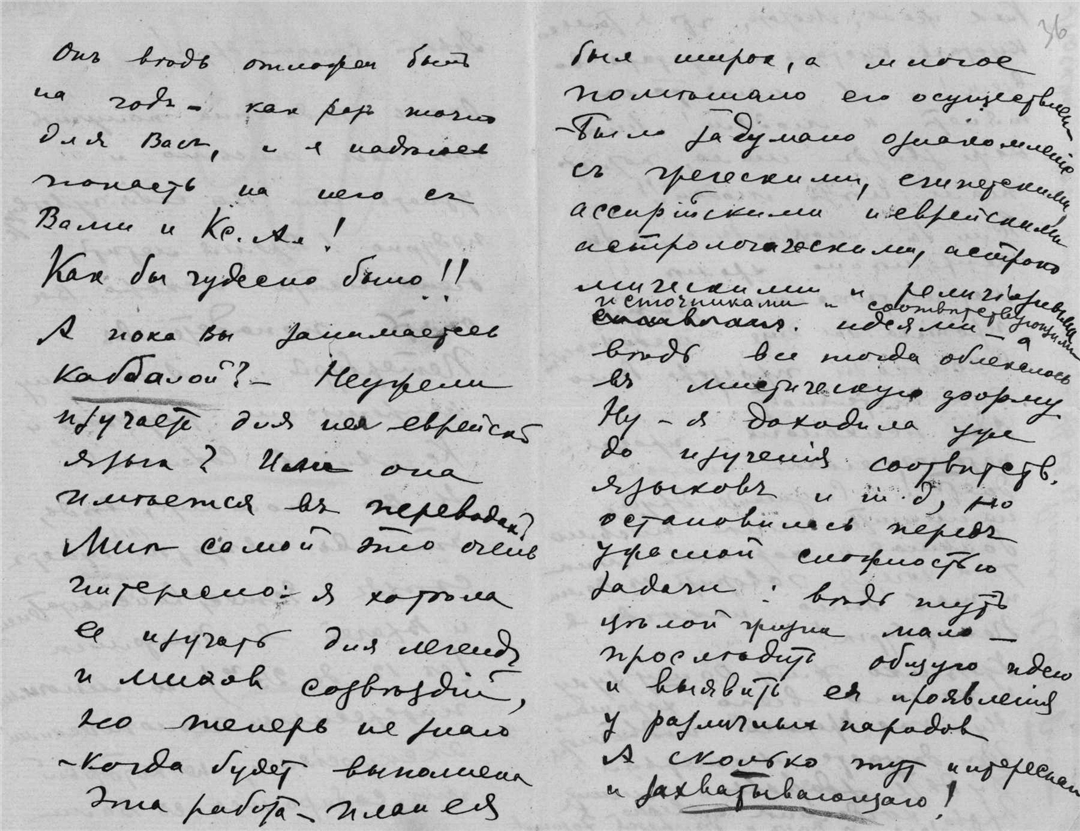 Онъ вѣдь отложен быть
на годъ – как раз точно
для Васъ, и я надѣюсь
попасть на него съ
Вами и Кс. Ал!
Как бы чудесно было!!
А пока Вы занимаетесь
каббалой? – Неужели
изучаете для нея еврейскій
языкъ? Или она
имѣется въ переводах?
Мнѣ самой это очень
интересно: я хотѣла
ее изучать для легендъ
и мифов созвѣздій,
но теперь не знаю
– когда будет выполнена
эта работа – план ея
36
был широк, а многое
помѣшало его осуществлен-
– Было задумано ознакомленіе
съ греческими, египетскими
ассирійскими и еврейскими
астрологическими, астроно
мическими и религіозными
источниками и соотвѣтствующими
идеями – а
вѣдь все тогда облекалось
въ мистическую форму
Ну – я доходила уже
до изученія соотвѣтств.
языковъ и т д, но
остановилась передъ
ужасной сложностью
задачи: вѣдь тутъ
цѣлой жизни мало –
прослѣдить общую идею
и выявить ея проявленія
у различных народов
А сколько тут интереснаго
и захватывающаго!